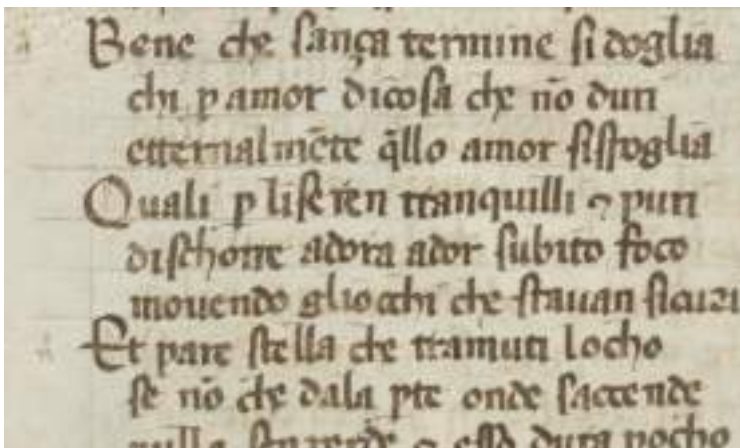 Bene che sança termine si doglia
chi p amor dicosa che nō duri
etternalmēte q̄llo amor sispoglia
Quali p liserēn tranquilli ⁊ puri
dischorre adora ador subito foco
movendo gliocchi che stavan sicuri
Et pare stella che tramuti locho
se nō che dala pte onde saccende
nulla sen perde ⁊ esso dura pocho